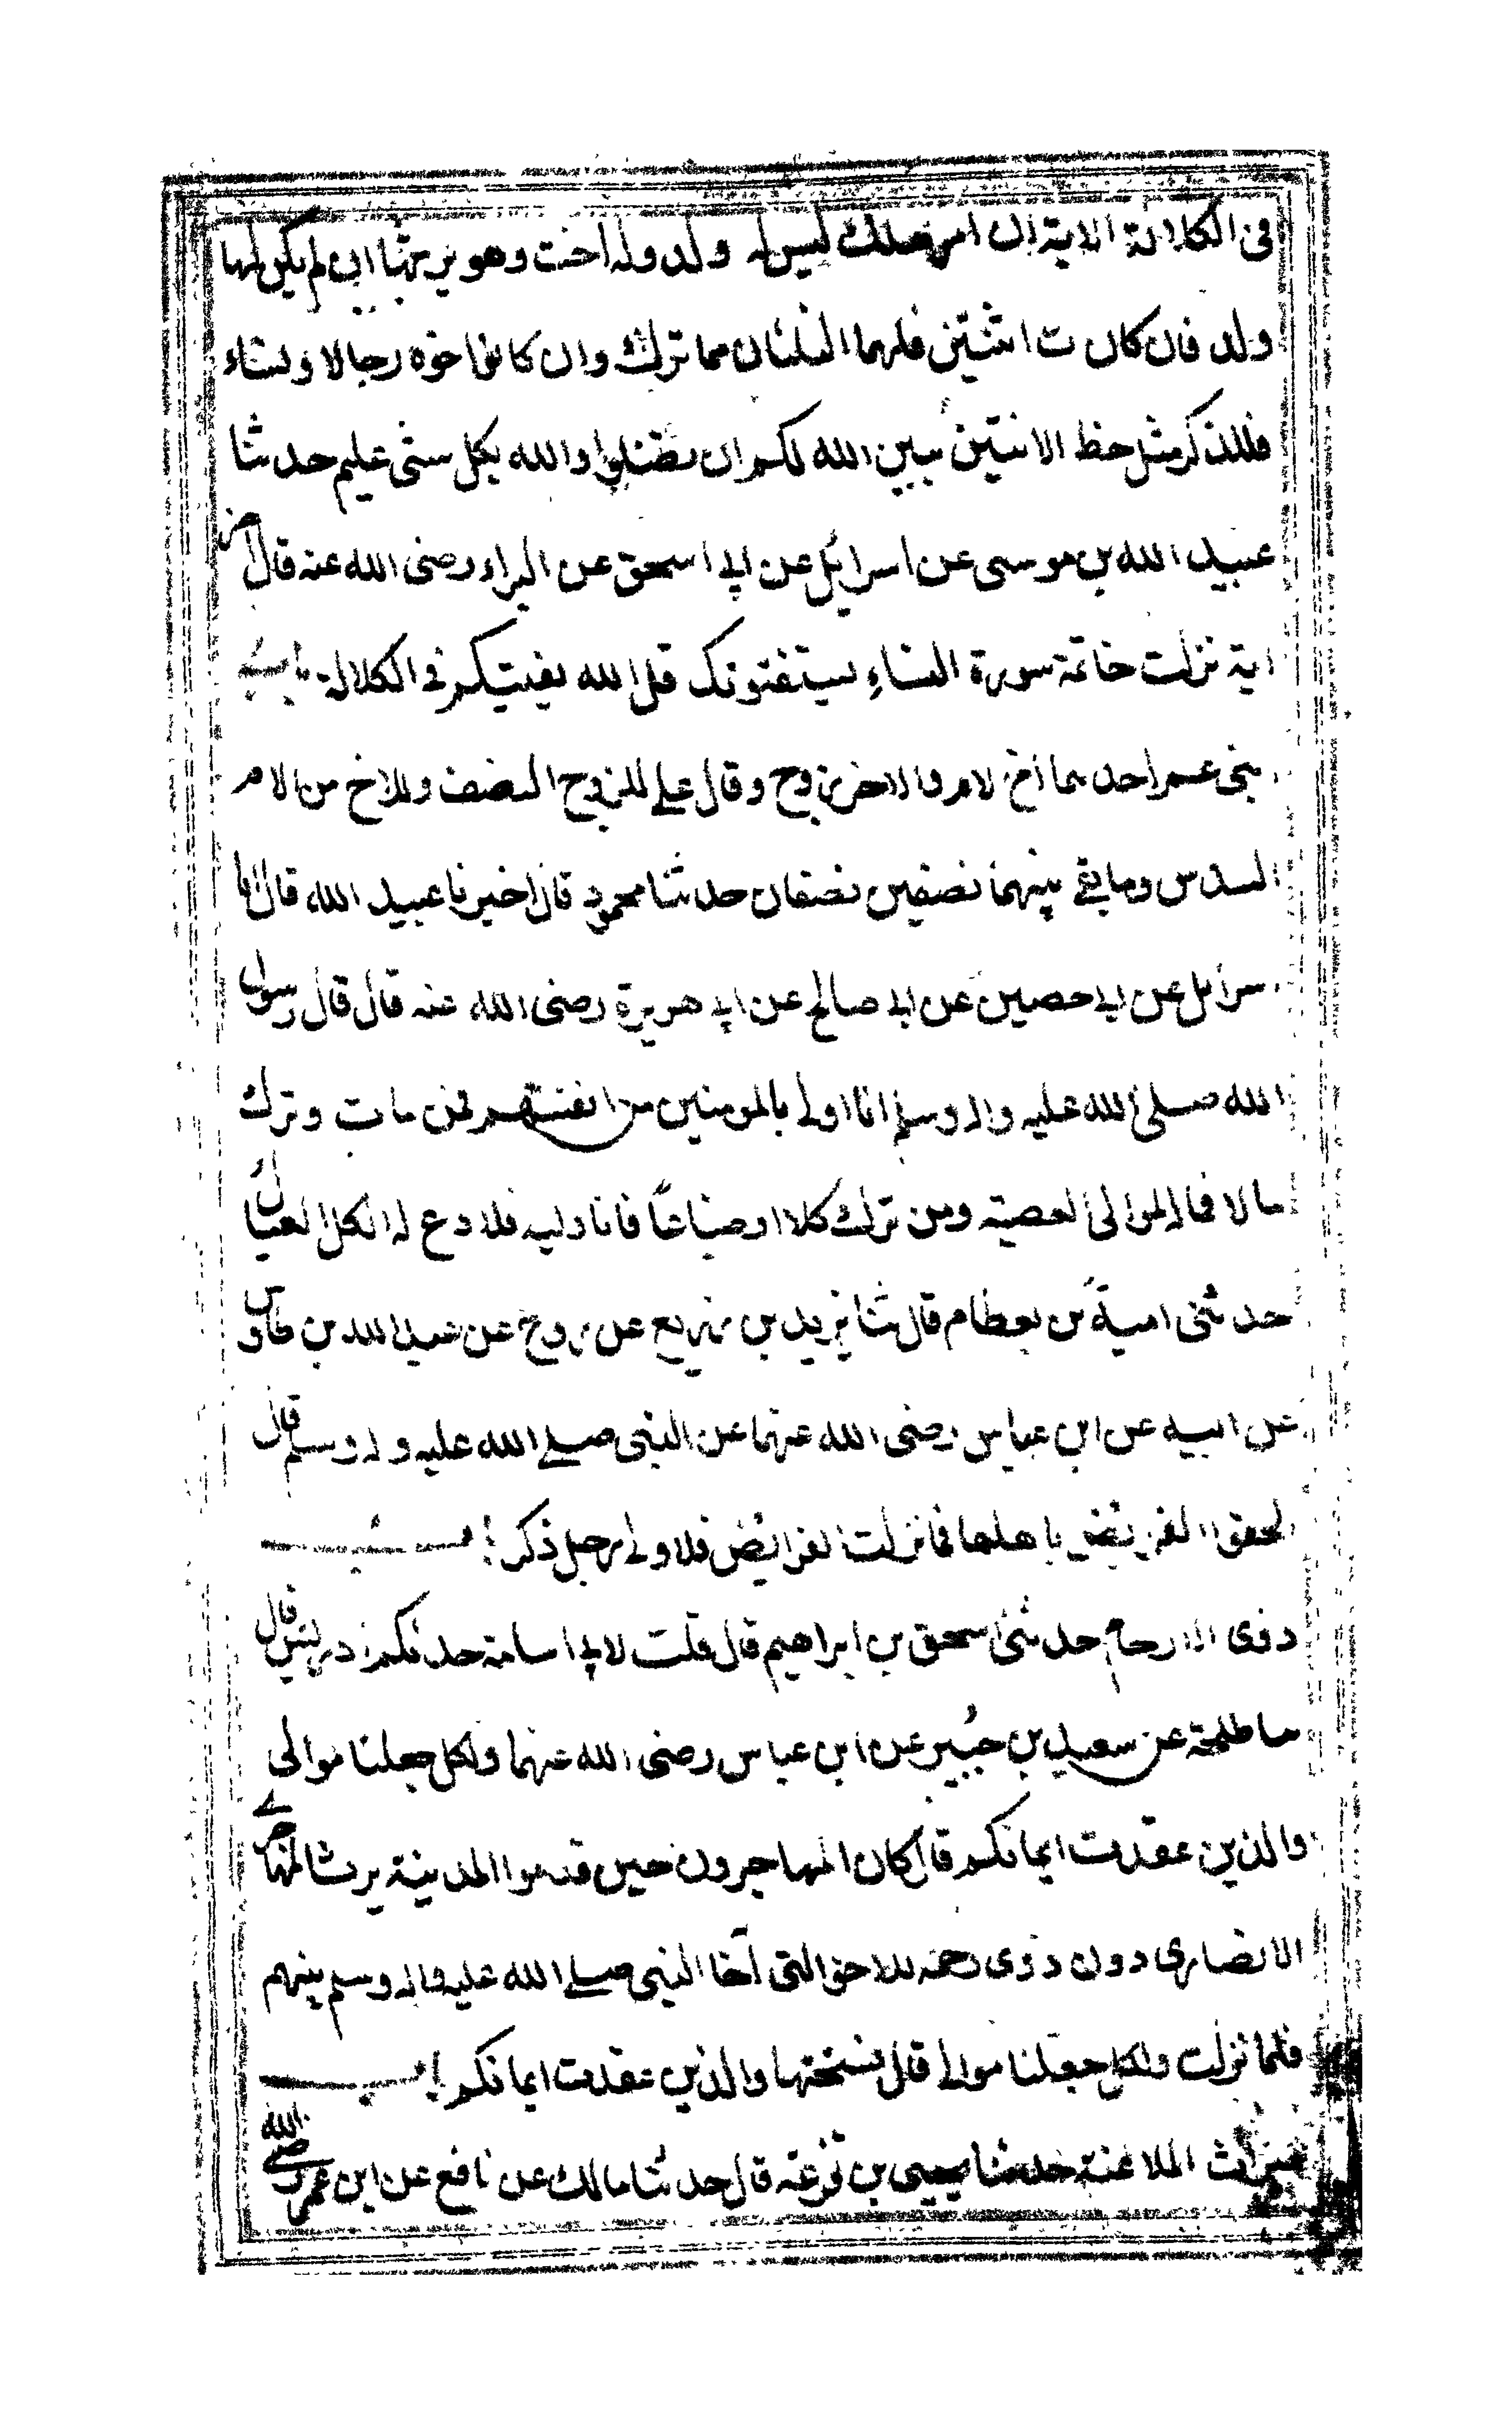 في الكلالة الاية ان امرؤ هلك ليس له ولد وله اخت وهو يرثها ان لم يكن لها
ولد فان كانت اثنتين فلهما الثلثان مما ترك وان كانوا اخوة رجالا ونساء
فللذكر مثل حظ الانثيين يبين الله لكم ان تضلوا والله بكل شئ عليم حدثنا
عبيد الله بن موسى عن اسرائيل عن ابي اسحق عن البراء رضى الله عنه قال اخر
اية نزلت خاتمة سورة النساء يستفتونك قل الله يفتيكم في الكلالة باب
بنى عم احدهما اخ لام والاخر زوج وقال علي للزوج النصف وللاخ من الام
السدس وما بقي بينهما نصفين نصفان حدثنا محمود قال اخبرنا عبيد الله قال انا
سرائل عن ابي حصين عن ابي صالح عن ابي هريرة رضى الله عنه قال قال رسول
الله صلى الله عليه واله وسلم انا اولى بالمومنين من انفسهم فمن مات وترك
مالا فماله لموالى العصبة ومن ترك كلا او ضياعا فانا وليه فلادع له الكل العيال
حدثنى امية بن بسطام قال ثنا يزيد بن زريع عن روح عن عبد الله بن طاوس
عن ابيه عن ابن عباس رضى الله عنهما عن النبى صلى الله عليه وله وسلم قال
الحقوا الفرائض باهلها فما تركت الفرائض فلاولى رجل ذكر باب
ذوى الارحام حدثنى اسحق بن ابراهيم قال قلت لابي اسامة حدثكم ادريس قال
ما طلحة عن سعيد بن جبير عن ابن عباس رضى الله عنهما ولكل جعلنا موالى
والذين عقدت ايمانكم قال كان المهاجرون حين قدموا المدينة يرث المهاجرى
الانصارى دون ذوى رحمه للاخوة التى آخا النبى صلى الله عليه واله وسلم بينهم
فلما نزلت ولكل جعلنا موالي قال نسختها والذين عقدت ايمانكم باب
ميراث الملاعنة حدثنا يحيى بن قزعة قال حدثنا مالك عن نافع عن ابن عمر رضى الله